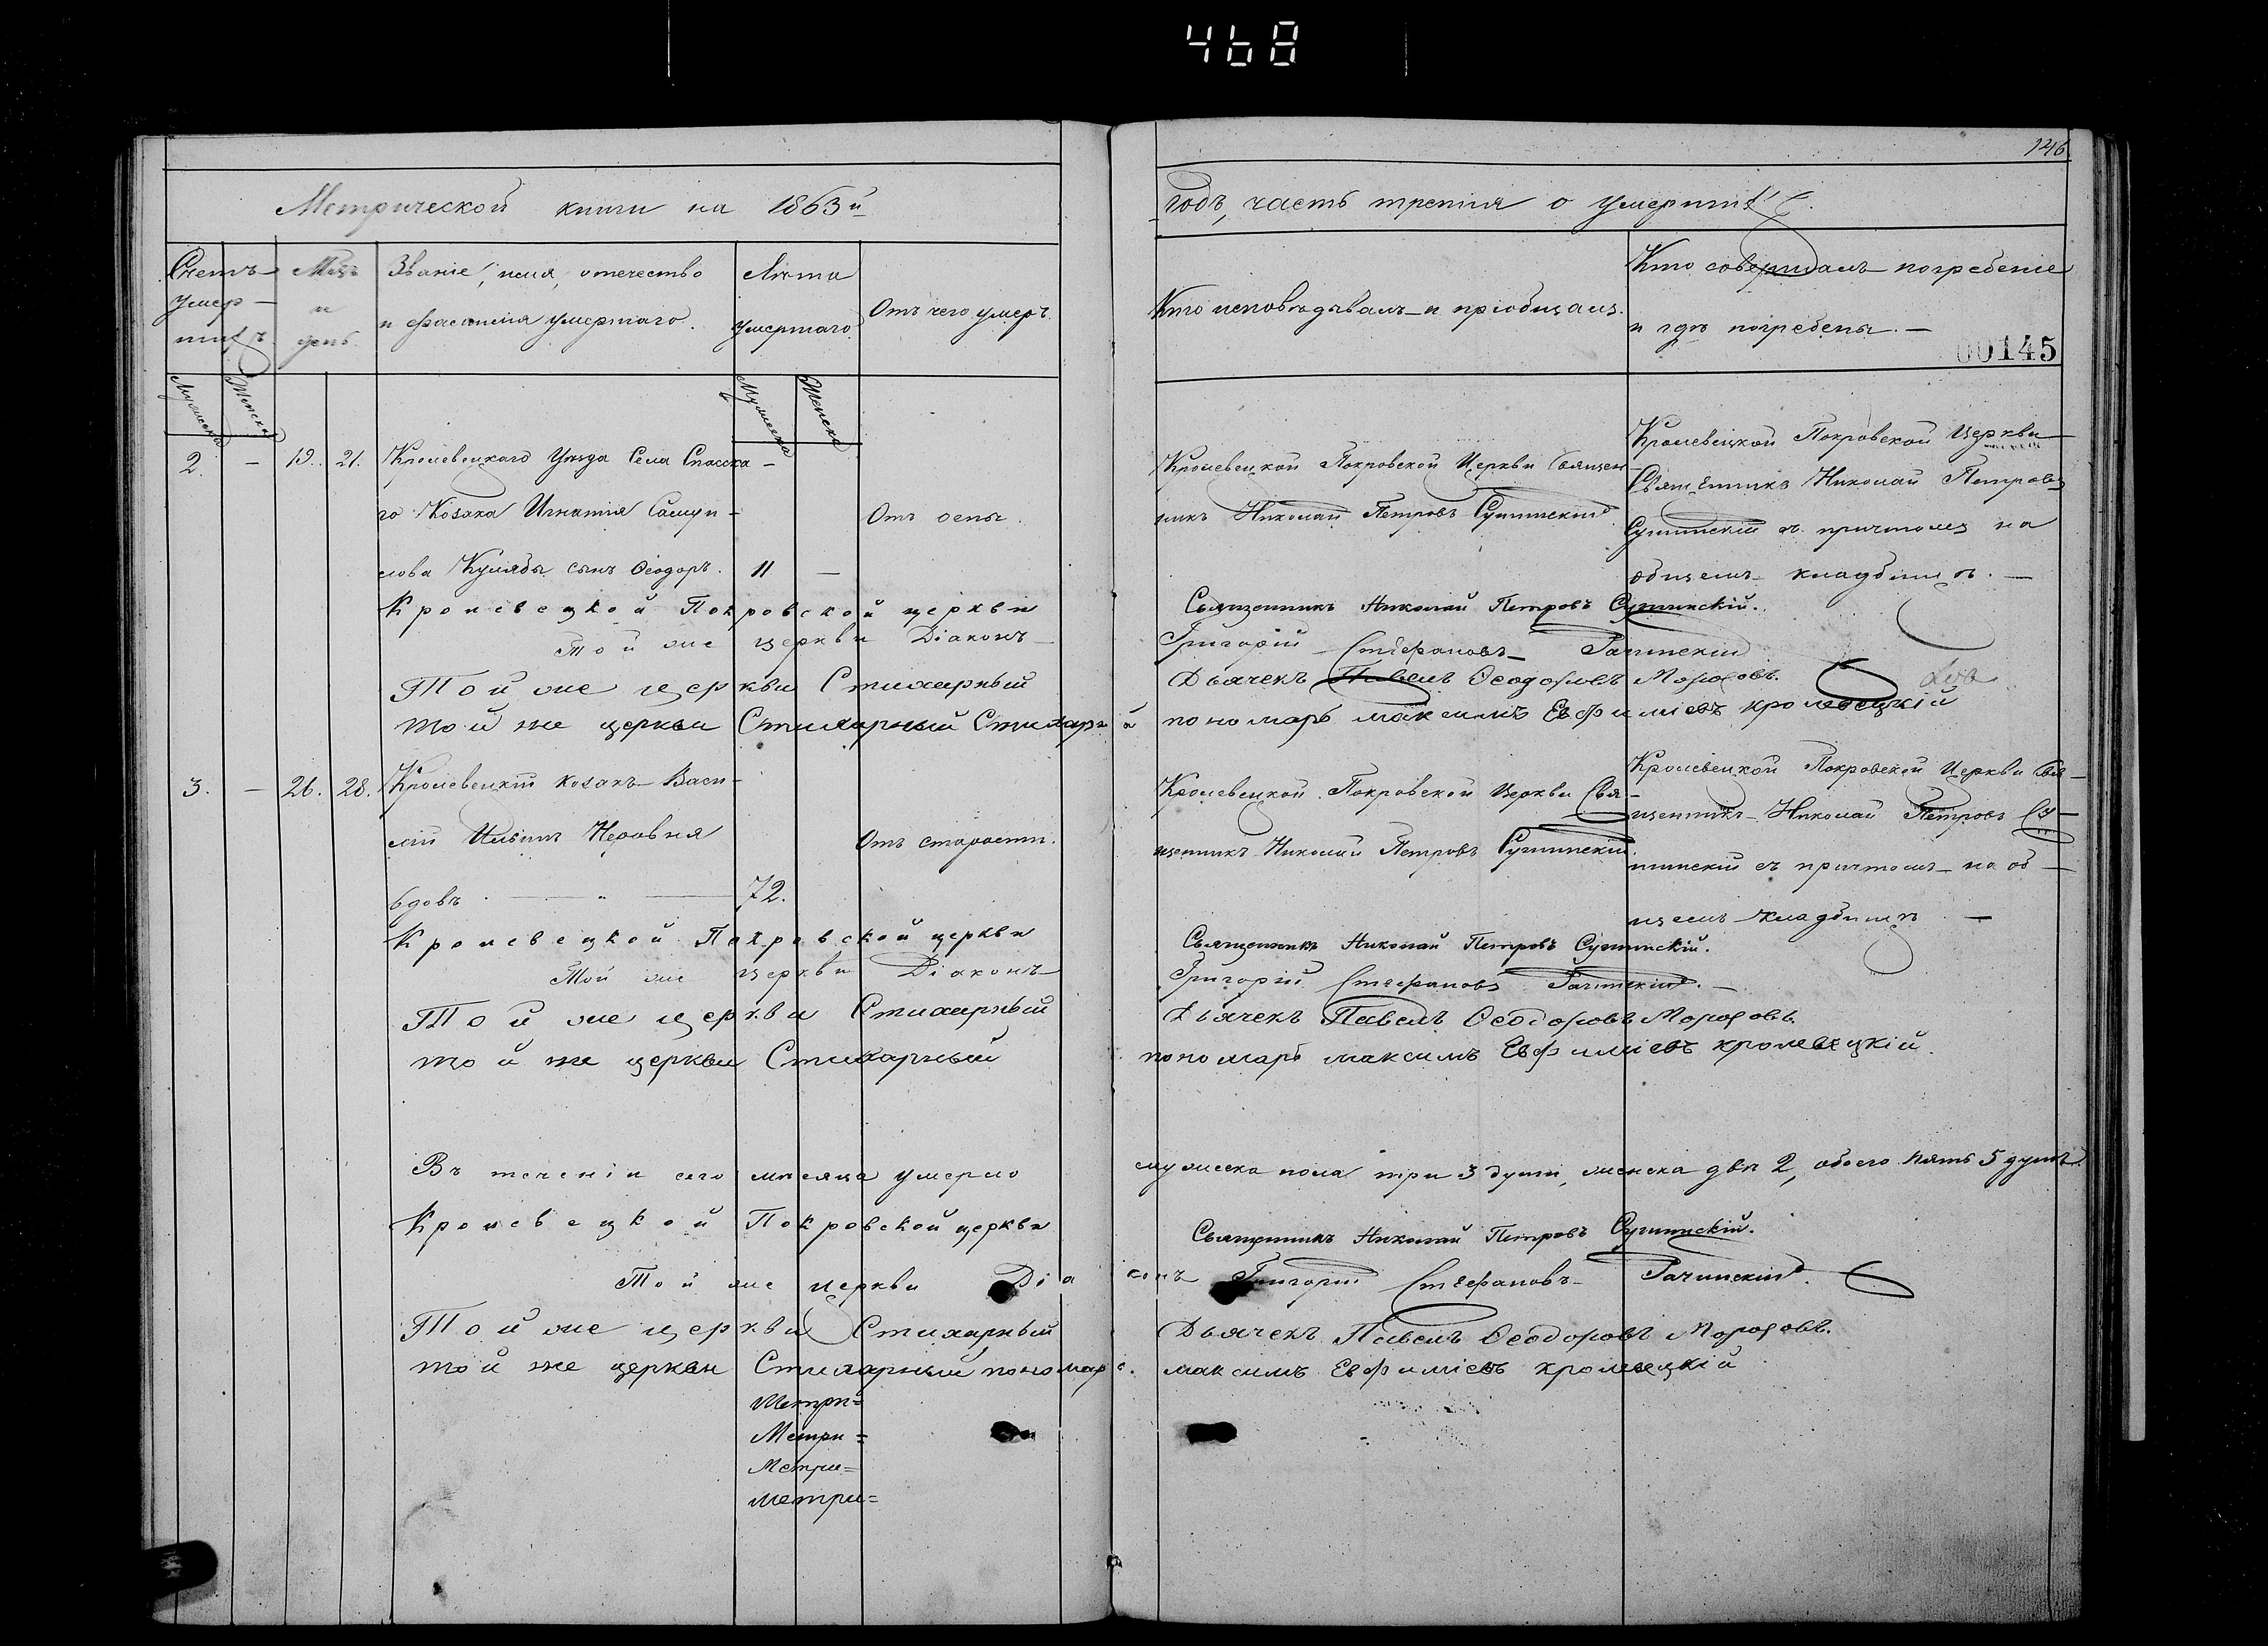 468
146
Метрической книги на 1863й
годъ, часть третія о умершихъ.
Счетъ умер-
шихъ.
Мцъ
и
день.
Званіе, имя, отечество
и фамилія умершаго.
Лѣта
умершаго.
Отъ чего умеръ.
Кто исповѣдывалъ и пріобщалъ.
Кто совершалъ погребеніе
и гдѣ погребены. —
00145
Мужеска
Женска
Мужеска
Женска
2. — 19. 21. Кролевецкаго Уѣзда Села Спасска-
го Козака Игнатія Самуи-
лова Кулябы сынъ Ѳеодоръ. 11 —
Отъ оспы.
Кролевецкой Покровской Церкви Священ-
никъ Николай Петровъ
Кролевецкой Покровской Церкви
Священникъ Николай Петровъ
съ причтомъ на
общемъ кладбищѣ. —
Кролевецкой Покровской церкви Священникъ Николай Петровъ
Той же церкви Діаконъ Григорій Стефановъ
Той же церкви Стихарный Дьячекъ Павелъ Ѳеодоровъ Морозовъ.
той же церкви Стихарный Стихарный пономарь максимъ Евфиміевъ кролевецкій
3. — 26. 28. Кролевецкій козакъ Васи-
лій Ильинъ Неровня
вдовъ. — 72.
Отъ старости.
Кролевецкой Покровской Церкви Свя-
щенникъ Николай Петровъ
Кролевецкой Покровской Церкви Свя-
щенникъ Николай Петровъ
съ причтомъ на об-
щемъ кладбищѣ —
Кролевецкой Покровской церкви Священникъ Николай Петровъ
Той же церкви Діаконъ Григорій Стефановъ
Той же церкви Стихарный Дьячекъ Павелъ Ѳеодоровъ Морозовъ.
той же церкви Стихарный пономарь максимъ Евфиміевъ кролевецкій.
Въ теченіи сего мѣсяца умерло мужеска пола три 3 души, женска двѣ 2, обоего пять 5 душъ.
Кролевецкой Покровской церкви Священникъ Николай Петровъ
Той же церкви Діаконъ Григорій Стефановъ
Той же церкви Стихарный Дьячекъ Павелъ Ѳеодоровъ Морозовъ.
той же церкви Стихарный пономарь. максимъ Евфиміевъ кролевецкій
Метри=
Метри=
Метри=
метри=